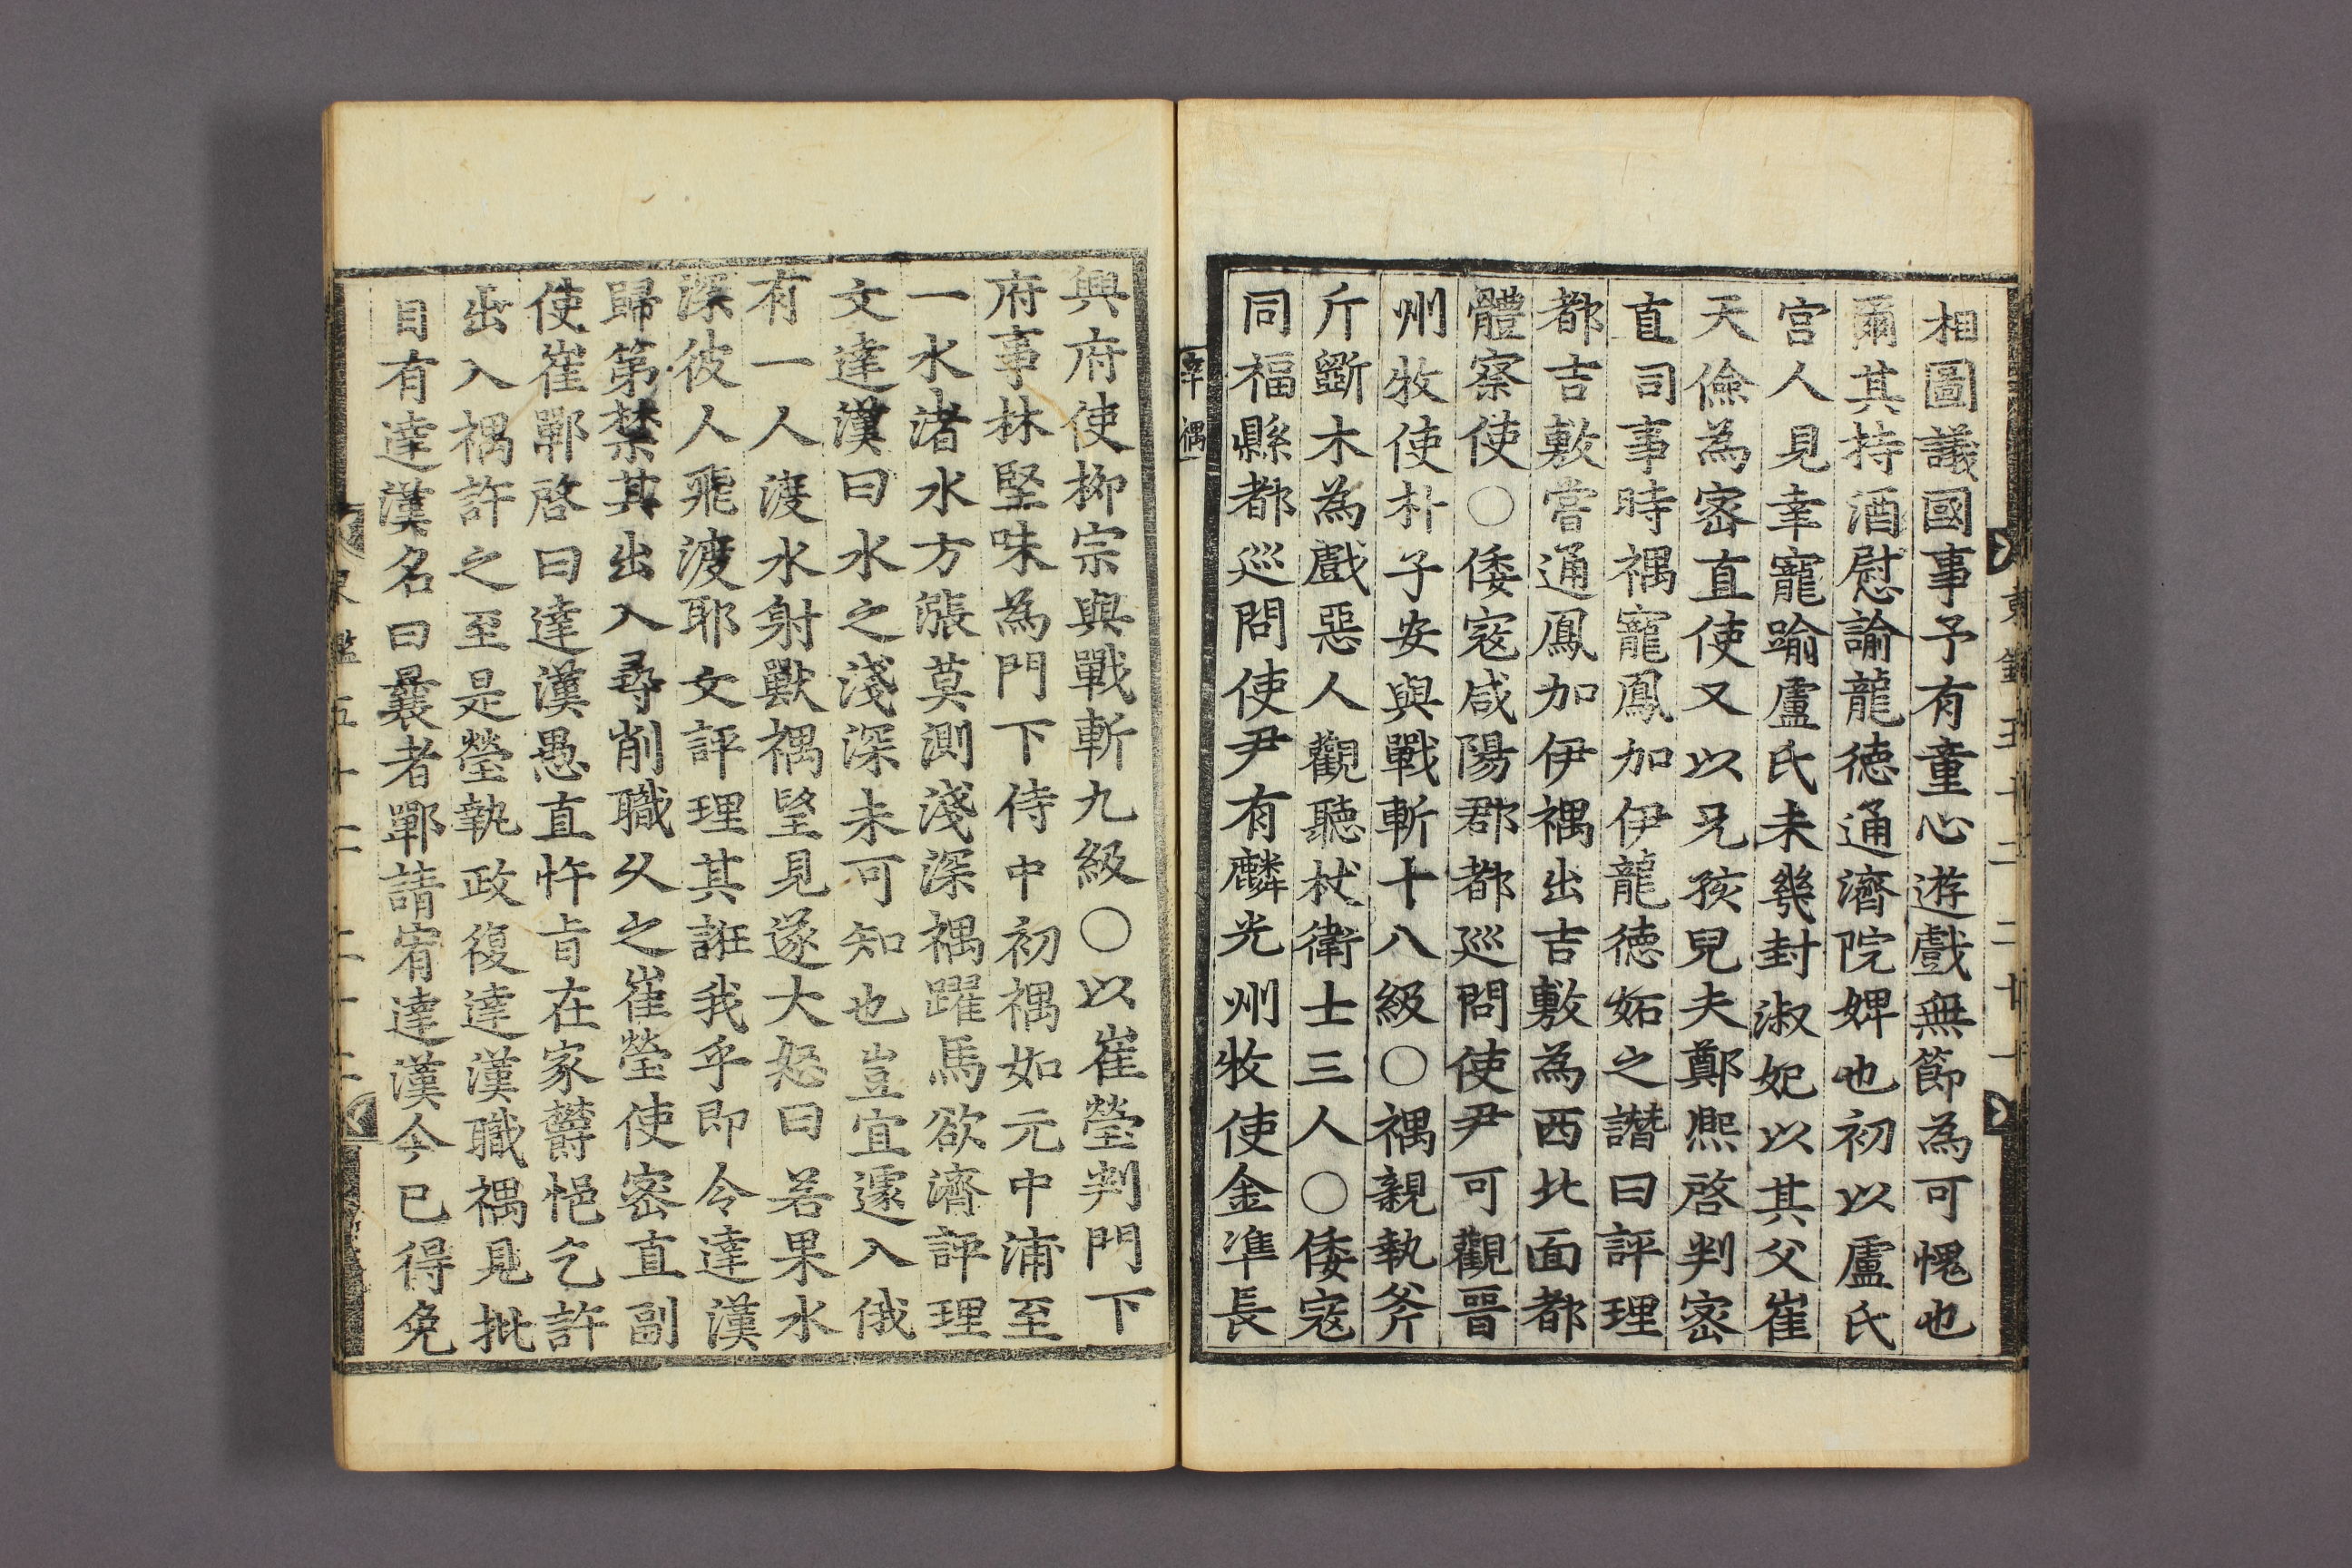 相圖議國事予有童心遊戲無節為可愧也
爾其持酒慰諭龍德通濟院婢也初以盧氏
宮人見幸寵踰盧氏未幾封淑妃以其父崔
天儉為密直使又以兄孩兒夫鄭熙啓判密
直司事時禑寵鳳加伊龍德妬之譖曰評理
都吉敷嘗通鳳加伊禑出吉敷為西北面都
體察使○倭寇咸陽郡都巡問使尹可觀晋
州牧使朴子安與戰斬十八級○禑親執斧
斤斲木為戲惡人觀聽杖衛士三人○倭寇
同福縣都巡問使尹有麟光州牧使金準長
辛禑
興府使柳宗與戰斬九級○以崔瑩判門下
府事林堅味為門下侍中初禑如元中浦至
一水渚水方漲莫測淺深禑躍馬欲濟評理
文達漢曰水之淺深未可知也豈宜遽入俄
有一人渡水射獸禑望見遂大怒曰若果水
深彼人飛渡耶文評理其誑我乎即令達漢
歸第禁其出入尋削職久之崔瑩使密直副
使崔鄲啓曰達漢愚直忤旨在家欝悒乞許
出入禑許之至是瑩執政復達漢職禑見批
目有達漢名曰曩者鄲請宥達漢今已得免